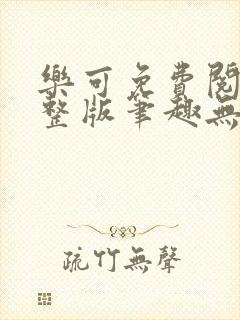 樂可免費閱
整版筆趣無
疏竹無聲